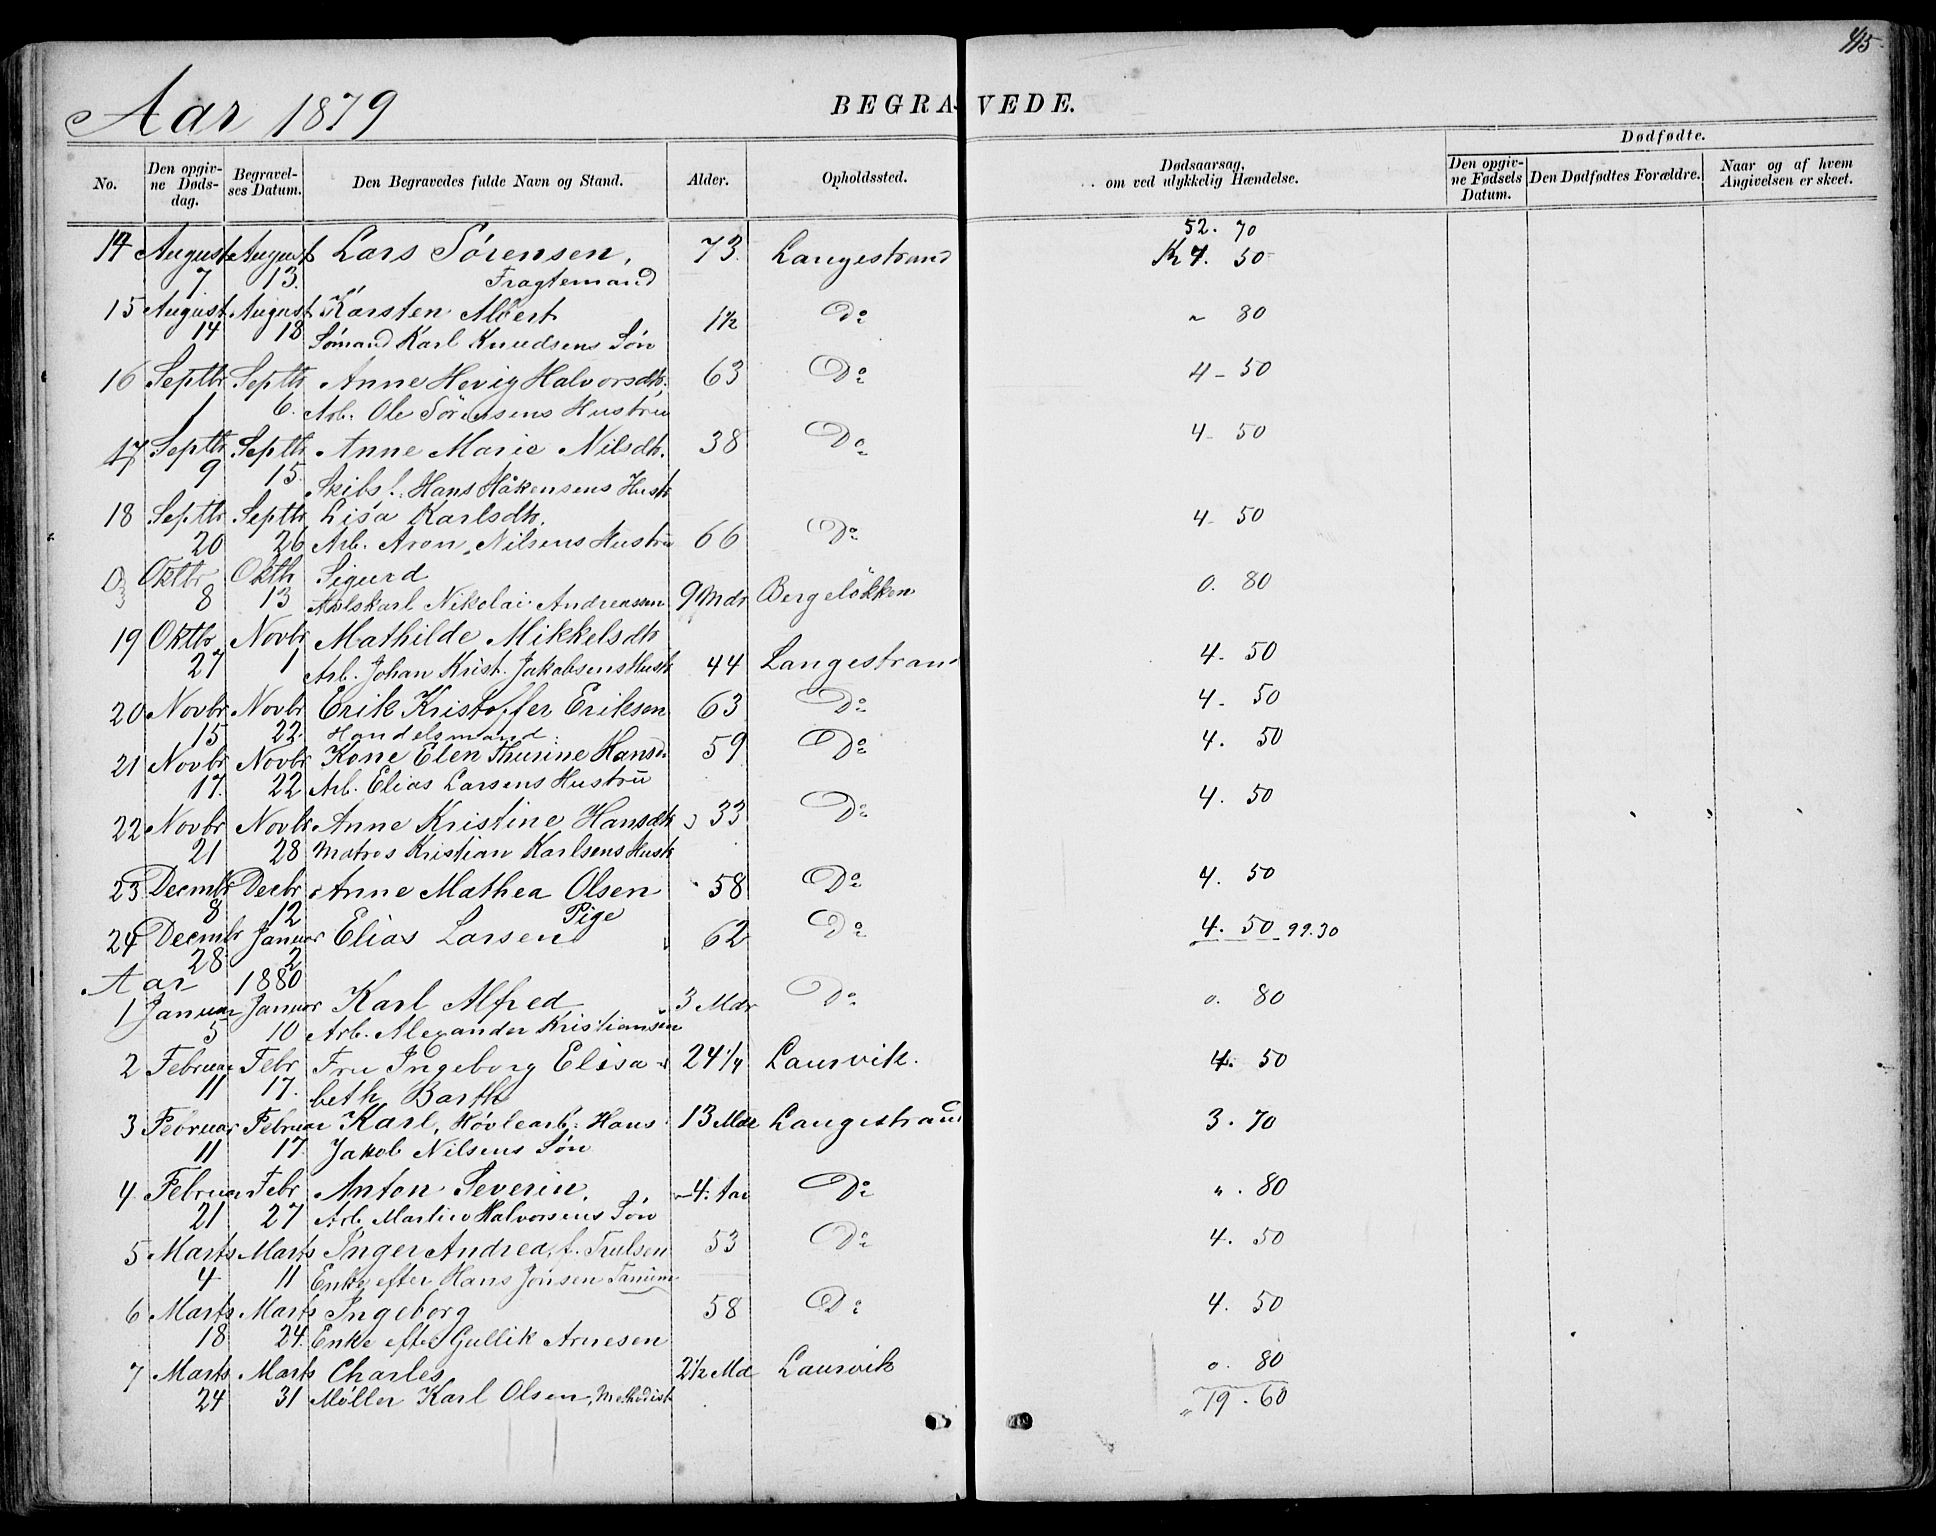 415.
Aar 1879
BEGRAVEDE.
No. Den opgivne Dødsdag. Begravelses Datum. Den Begravedes fulde Navn og Stand. Alder. Opholdssted. Dødsaarsag, om ved ulykkelig Hændelse. Dødfødte. Den opgivne Fødsels Datum. Den Dødfødtes Forældre. Naar og af hvem Angivelsen er skeet.
52. 70
14 August August Lars Sørensen, 73. Langestrand Kr 4. 50
7. 13. Fragtemand
15 August August Karsten Albert 1½ Do " 80
14 18 Sømand Karl Knudsens Søn
16 Septbr Septbr Anne Hevig Halvorsdtr. 63 Do 4 - 50
1 6. Arb. Ole Sörensens Hustru
17 Septbr Septbr Anne Marie Nilsdtr. 38 Do 4 - 50
9 15. Skibs t. Hans Håkensens Hustr
18 Septbr Septbr Lisa Karlsdtr. 4 - 50
20 26 Arb. Aron Nilsens Hustru 66 Do
Oktbr Oktbr Sigurd 0. 80
8 13 Avlskarl Nikolai Andreassen 9 Mdr Bergeløkken
19 Oktbr Novbr Mathilde Mikkelsdtr 4. 50
27 1 Arb. Johan Krist. Jakobsens Hustr 44 Langestran
20 Novbr Novbr Erik Kristoffer Eriksen 63 Do 4 - 50
15 22. Handelsmand.
21 Novbr Novbr Kone Elen Thurine Hansd. 59 Do 4. 50
17. 22 Arb. Elias Larsens Hustru
22 Novbr Novbr Anne Kristine Hansdtr 33 Do 4. 50
21 28 Matros Kristian Karlsens Hustr
23 Decmbr Decbr Anne Mathea Olsen 58 Do 4. 50
8 12 Pige
24 Decmbr Januar Elias Larsen 62 Do 4. 50 99.30
28 2
Aar 1880
1 Januar Januar Karl Alfred 3 Mdr Do 0. 80
5 10 Arb. Alexander Kristiansen
2 Februar Febr Fru Ingeborg Elisa- 24 ¼ Laurvik. 4. 50
11 17. beth Barth
3 Februar Februar Karl, Høvlearb. Hans 13 Mdr Langestrand 3. 70
11 17. Jakob Nilsens Søn
4 Februar Febr Anton Severin, 4. Aar Do " . 80
21 27 Arb. Martin Halvorsens Søn
5 Marts Marts Inger Andrea, f. Trulsen 53 Do 4. 50
4 11 Enke efter Hans Jonsen Tanum
6 Marts Marts Ingeborg 58 Do 4. 50
18 24. Enke efter Gullik Arnesen
7 Marts Marts Charles, 2½ Md Laurvik 0. 80
24 31 Møller Karl Olsen, Methodist
" 19. 60